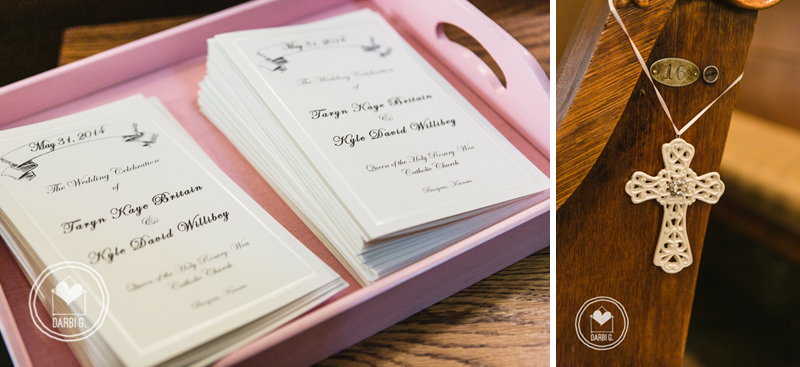 May 31, 2014
The Wedding Celebration
of
Taryn Kaye Britain
&
Kyle David Willibey
Queen of the Holy Rosary Wea
Catholic Church
Burgess, Kansas
May 31, 2014
The Wedding Celebration
of
Taryn Kaye Britain
&
Kyle David Willibey
Queen of the Holy Rosary Wea
Catholic Church
Kansas
DARBI G.
16
DARBI G.